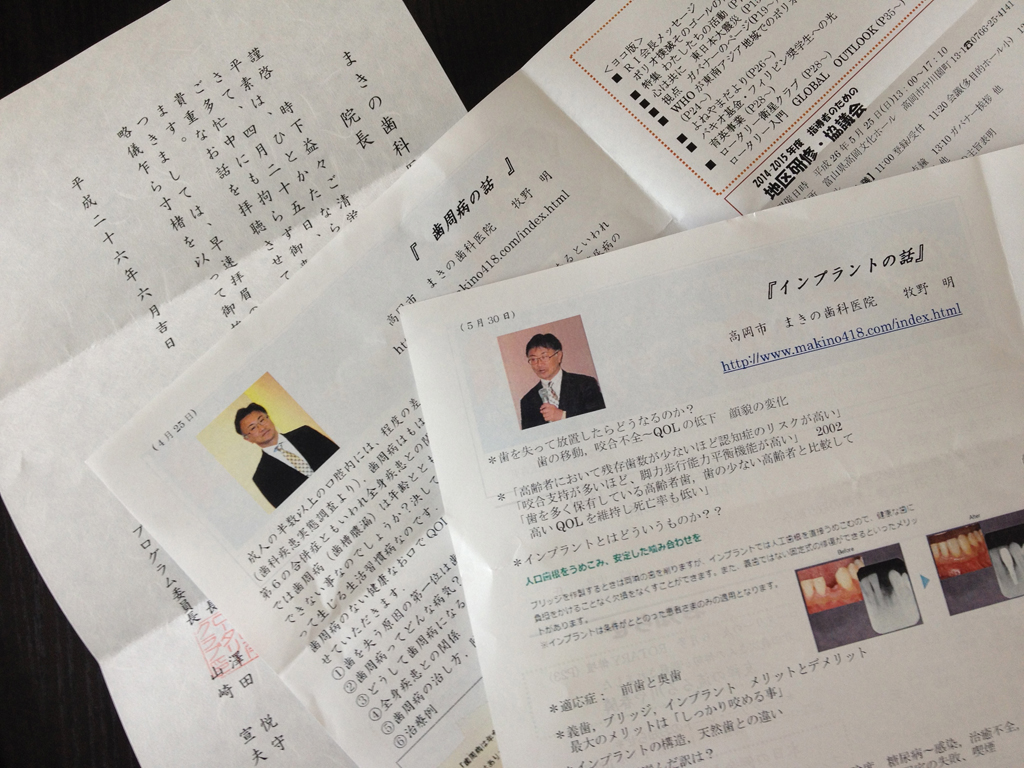 まきの歯科
院長
謹啓 時下益々ご清
平素は、ひとかたならぬご
さて、四月二十五日
ご多忙中にも拘らず御
貴重なお話を拝聴させて
ます。
つきましては、早速拝眉
略儀乍ら寸楮を以って御
平成二十六年六月吉日
プログラム委員長
山崎
澤田
宣夫
悦守
『歯周病の話』
高岡市 まきの歯科医院 牧野 明
makino418.com/index.html
(4月25日)
成人の半数以上の口腔内には、程度の差
(歯科疾患実態調査より)、歯周病はもは
第6の合併症ともいわれ全身疾患との関
では歯周病(歯槽膿漏)は年齢とと
できない事なのでしょうか?決して
って生じる生活習慣病なのです。
歯周病のない健康なお口でQOL
せていただきます。
①歯を失う原因の第一位は歯
②歯周病ってどんな病気?
③どうして歯周病になる
④全身疾患との関係
⑤歯周病の治し方、
⑥治療例
<ヨコ版>
■R.I.会長メッセージ
■ポリオ撲滅そのゴールの
■特集 わたしたちの活動(P
■心は共に 東日本大震災(P1
■視点 ガバナーのページ(P19~
■WHOが東南アジア地域でのポリオ
(P24~)
■よねやまだより(P26~)
■バギオ基金・フィリピン奨学生への光
育英事業(P28~)
■ロータリー衛星クラブ(P28~)
■ロータリー入門 GLOBAL OUTLOOK(P35~)
2014-2015年度 指導者のための
地区研修・協議会
日時 平成26年5月25日(日)13:00~17:10
富山県高岡文化ホール 高岡市中川園町13-1☎0766-25-4141
11:00登録/受付 11:20会議(多目的ホール小)
13:10ガバナー始挨 他
(5月30日)
『インプラントの話』
高岡市 まきの歯科医院 牧野 明
http://www.makino418.com/index.html
*歯を失って放置したらどうなるのか?
歯の移動、咬合不全~QOLの低下 顔貌の変化
*「高齢者において残存歯数が少ないほど認知症のリスクが高い」
「咬合支持が多いほど、脚力歩行能力平衡機能が高い」 2002
「歯を多く保有している高齢者歯、歯の少ない高齢者と比較して
高いQOLを維持し死亡率も低い」
*インプラントとはどういうものか??
人口歯根をうめこみ、安定した噛み合わせを
ブリッジを作製するときは両隣の歯を削りますが、インプラントでは人工歯根を直接うめこむので、健康な歯に
負担をかけることなく欠損をなくすことができます。また、義歯ではない固定式の修復ができるといったメリッ
トがあります。
※インプラントは条件がととのった患者さまのみの適用となります。
Before
After
*適応症: 前歯と奥歯
*義歯、ブリッジ、インプラント メリットとデメリット
最大のメリットは「しっかり咬める事」
*インプラントの構造、天然歯との違い
選んだ訳は?
糖尿病~感染、治癒不全、
の失敗、喫煙